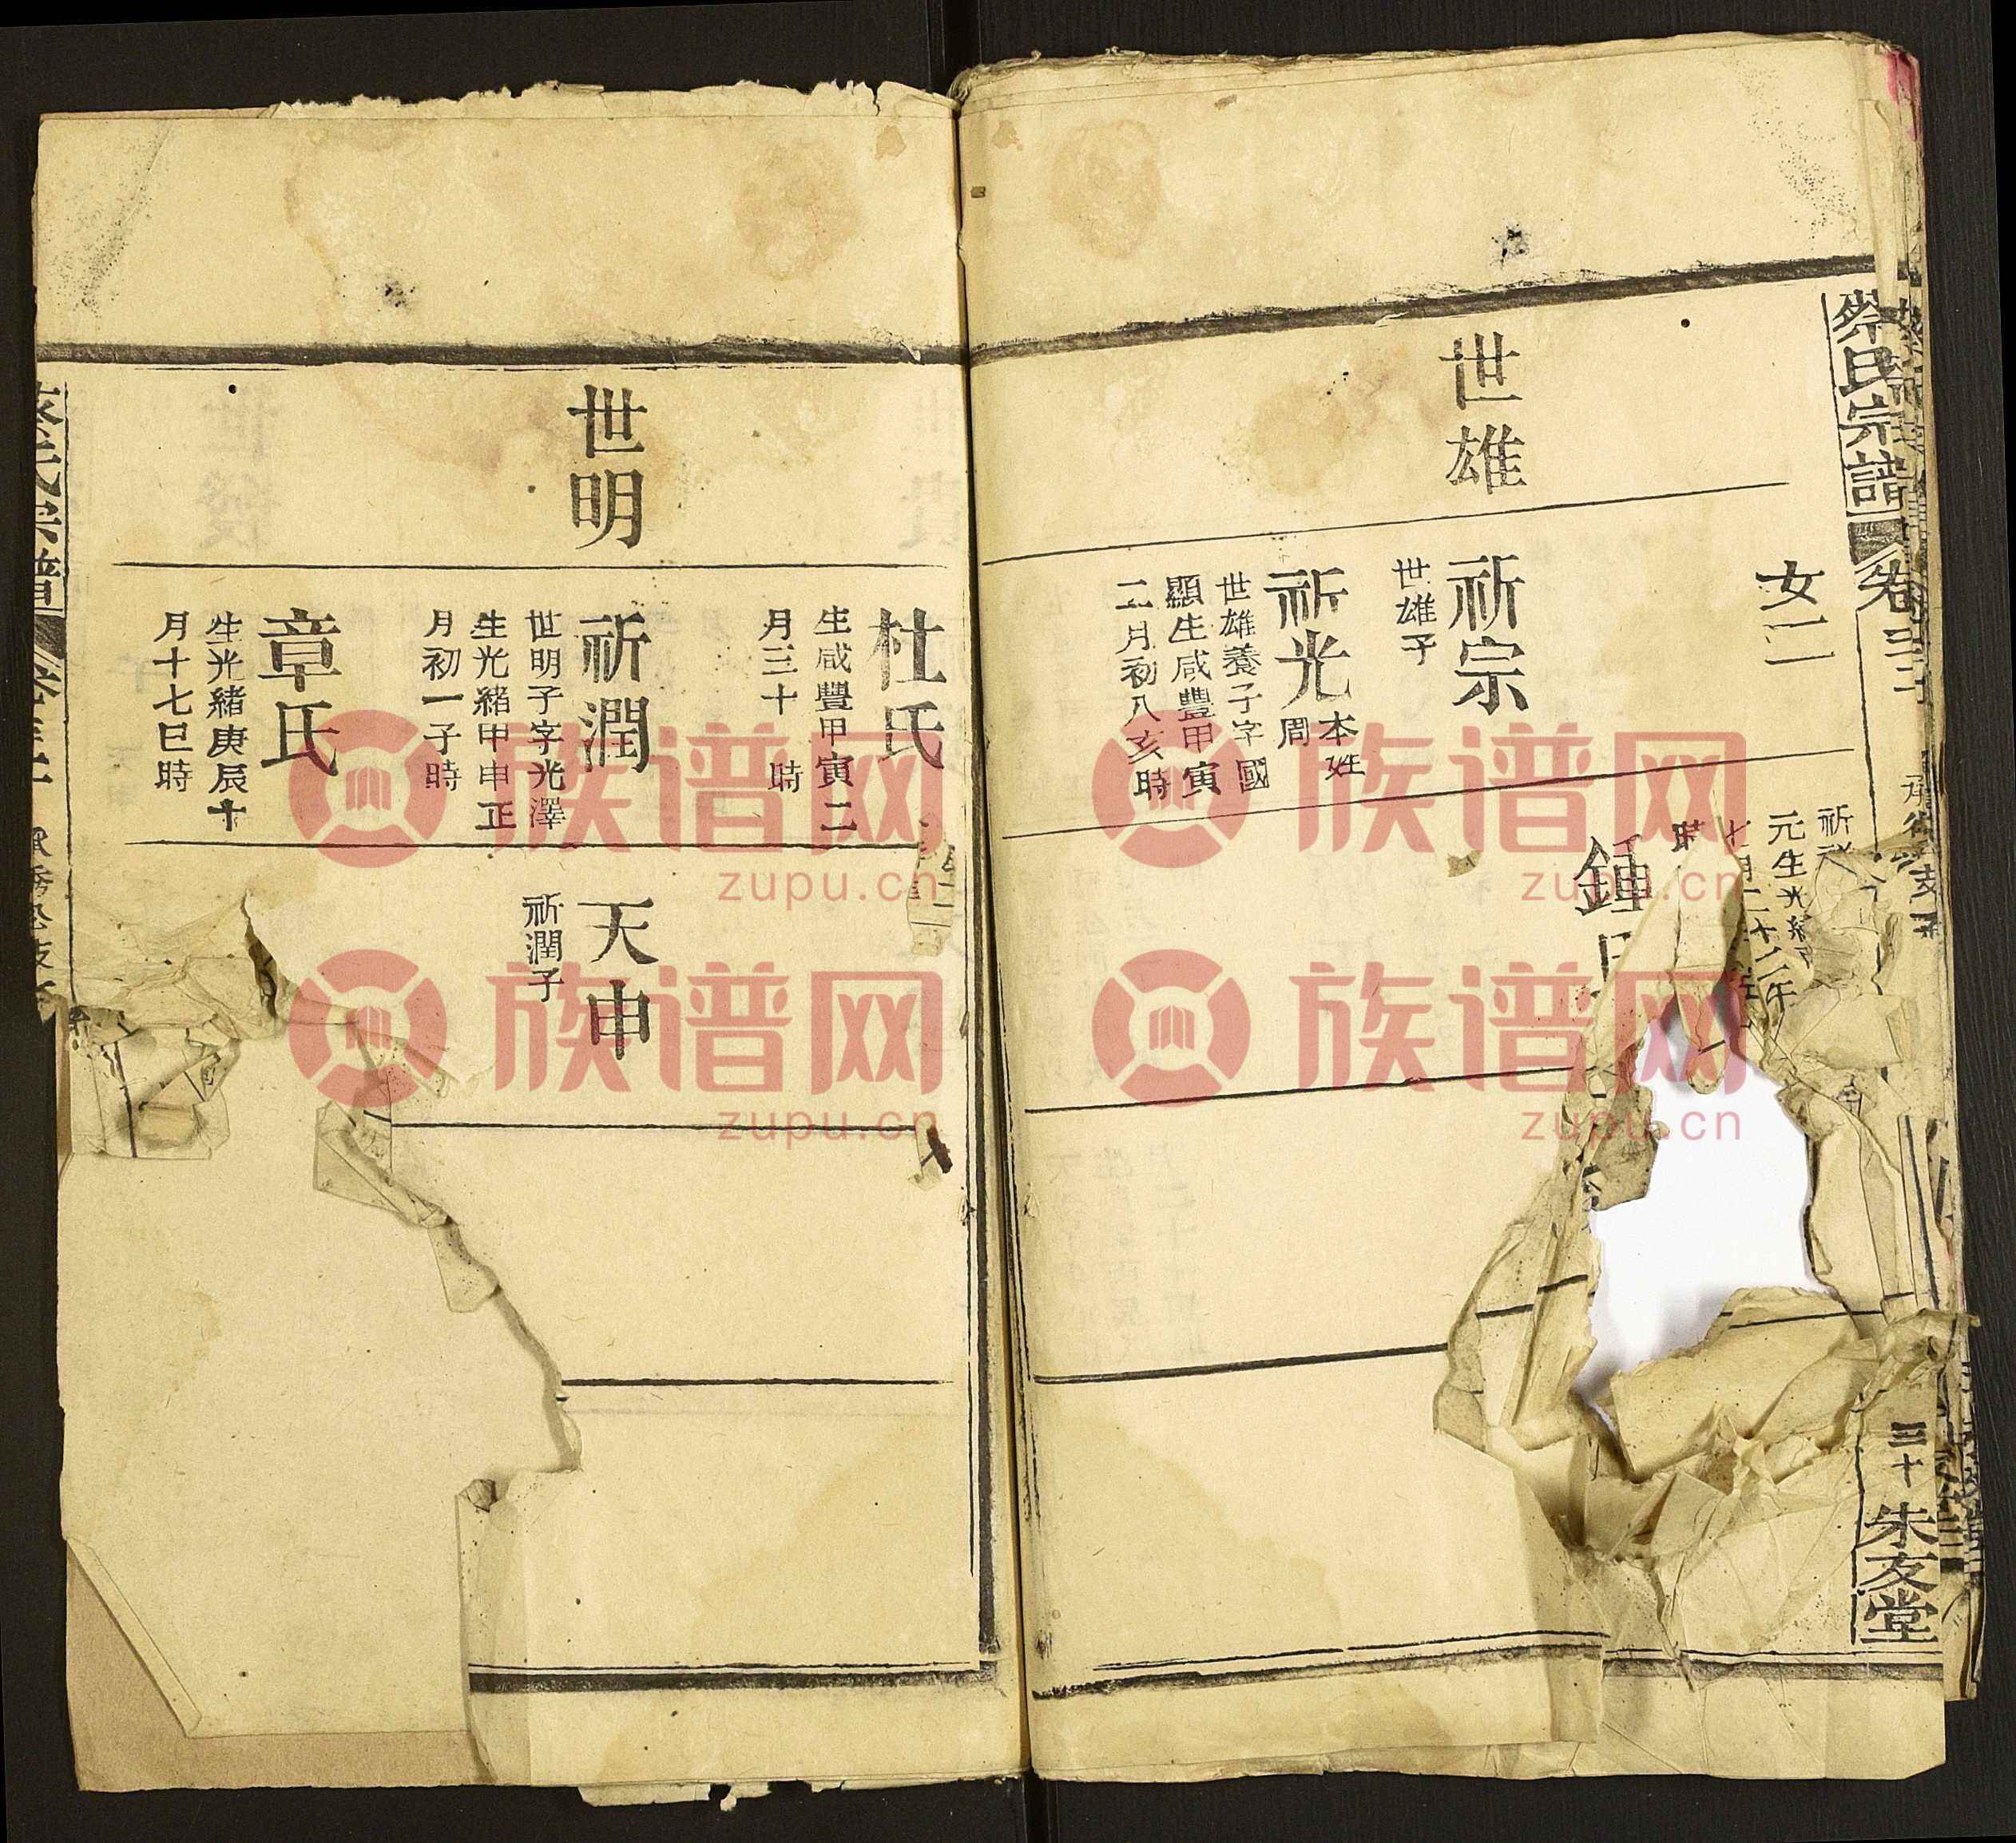 蔡氏宗譜
卷三十
三十
朱友堂
女二
祈祥
元生光緒
七月二十二午
時
鍾氏
世雄
祈宗
世雄子
祈光
本姓
周
世雄養子字國
顯生咸豐甲寅
二月初八亥時
杜氏
生咸豐甲寅二
月三十 時
世明
祈潤
世明子字光澤
生光緒甲申正
月初一子時
天申
祈潤子
章氏
生光緒庚辰十
月十七巳時
族谱网
zupu.cn
族谱网
zupu.cn
族谱网
zupu.cn
族谱网
zupu.cn